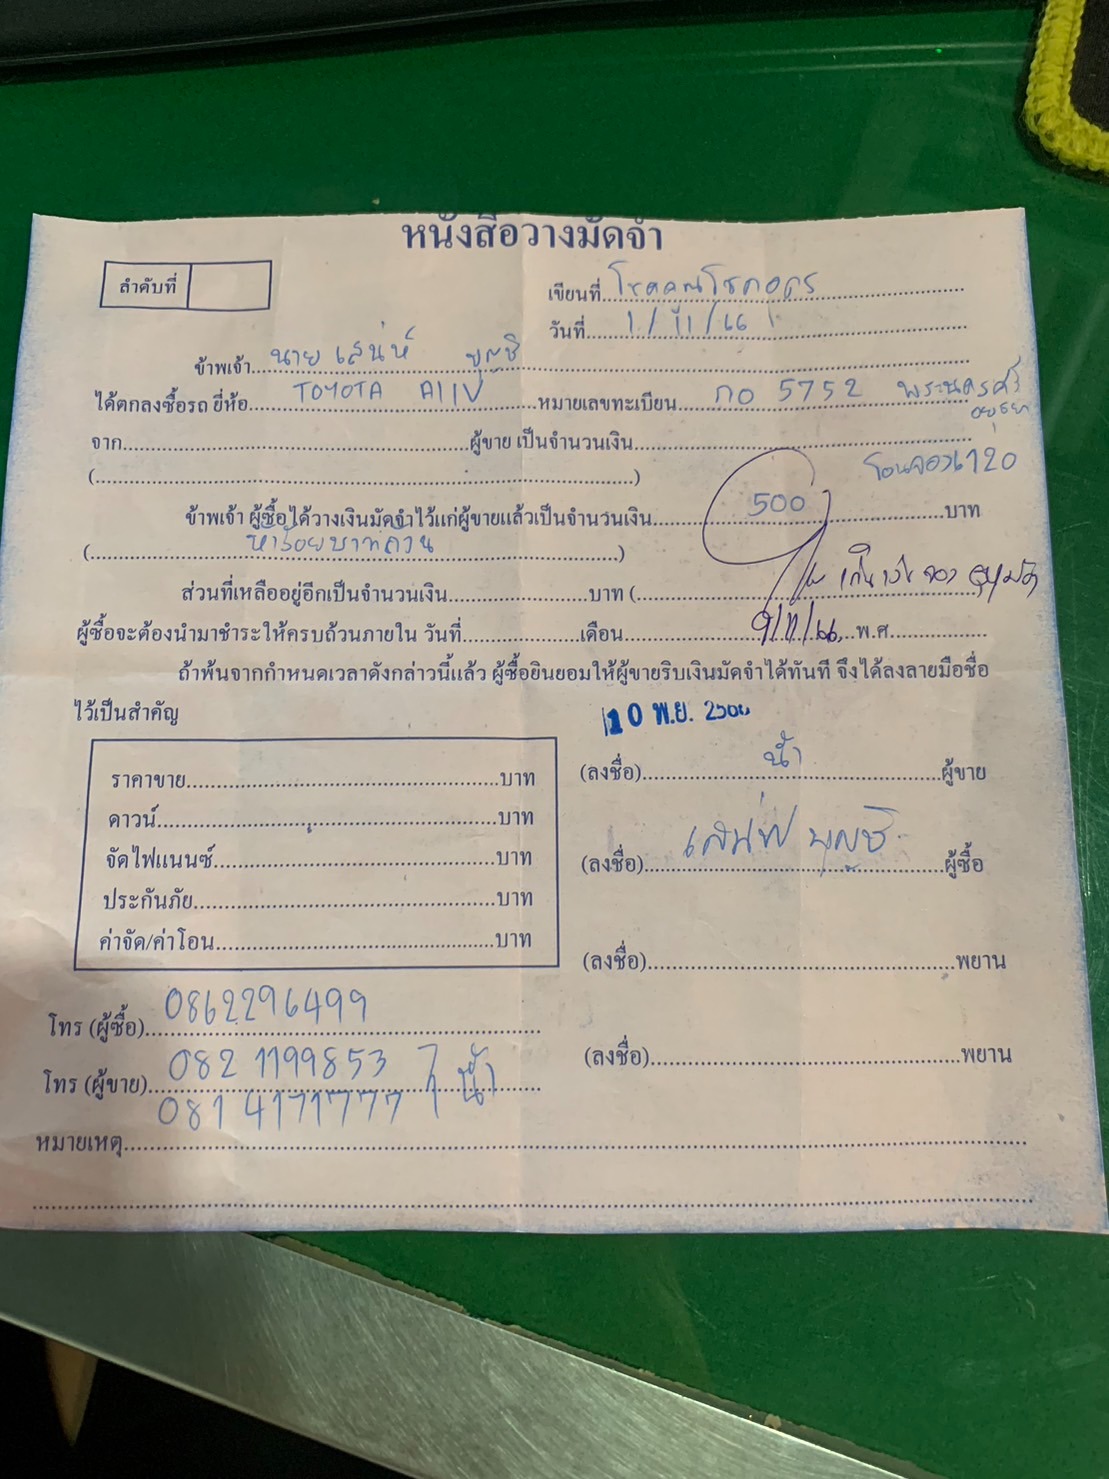 หนังสือวางมัดจำ
ลำดับที่
เขียนที่ โชคคูณโชคอุดร
วันที่ 1/11/66
ข้าพเจ้า นาย เสน่ห์ บุญชิ
ได้ตกลงซื้อรถ ยี่ห้อ TOYOTA หมายเลขทะเบียน กอ 5752 พระนครศรีอยุธยา
จาก ผู้ขาย เป็นจำนวนเงิน
( )
ข้าพเจ้า ผู้ซื้อได้วางเงินมัดจำไว้แก่ผู้ขายแล้วเป็นจำนวนเงิน 500 บาท
( ห้าร้อยบาทถ้วน )
ส่วนที่เหลืออยู่อีกเป็นจำนวนเงิน บาท (
ผู้ซื้อจะต้องนำมาชำระให้ครบถ้วนภายใน วันที่ เดือน 9/11/66 พ.ศ.
ถ้าพ้นจากกำหนดเวลาดังกล่าวนี้แล้ว ผู้ซื้อยินยอมให้ผู้ขายริบเงินมัดจำได้ทันที จึงได้ลงลายมือชื่อ
ไว้เป็นสำคัญ
10 พ.ย. 2566
ราคาขาย บาท
ดาวน์ บาท
จัดไฟแนนซ์ บาท
ประกันภัย บาท
ค่าจัด/ค่าโอน บาท
(ลงชื่อ) น้ำ ผู้ขาย
(ลงชื่อ) เสน่ห์ บุญชิ ผู้ซื้อ
(ลงชื่อ) พยาน
(ลงชื่อ) พยาน
โทร (ผู้ซื้อ) 0862296499
โทร (ผู้ขาย) 082 1199853 น้ำ
081 4171777
หมายเหตุ